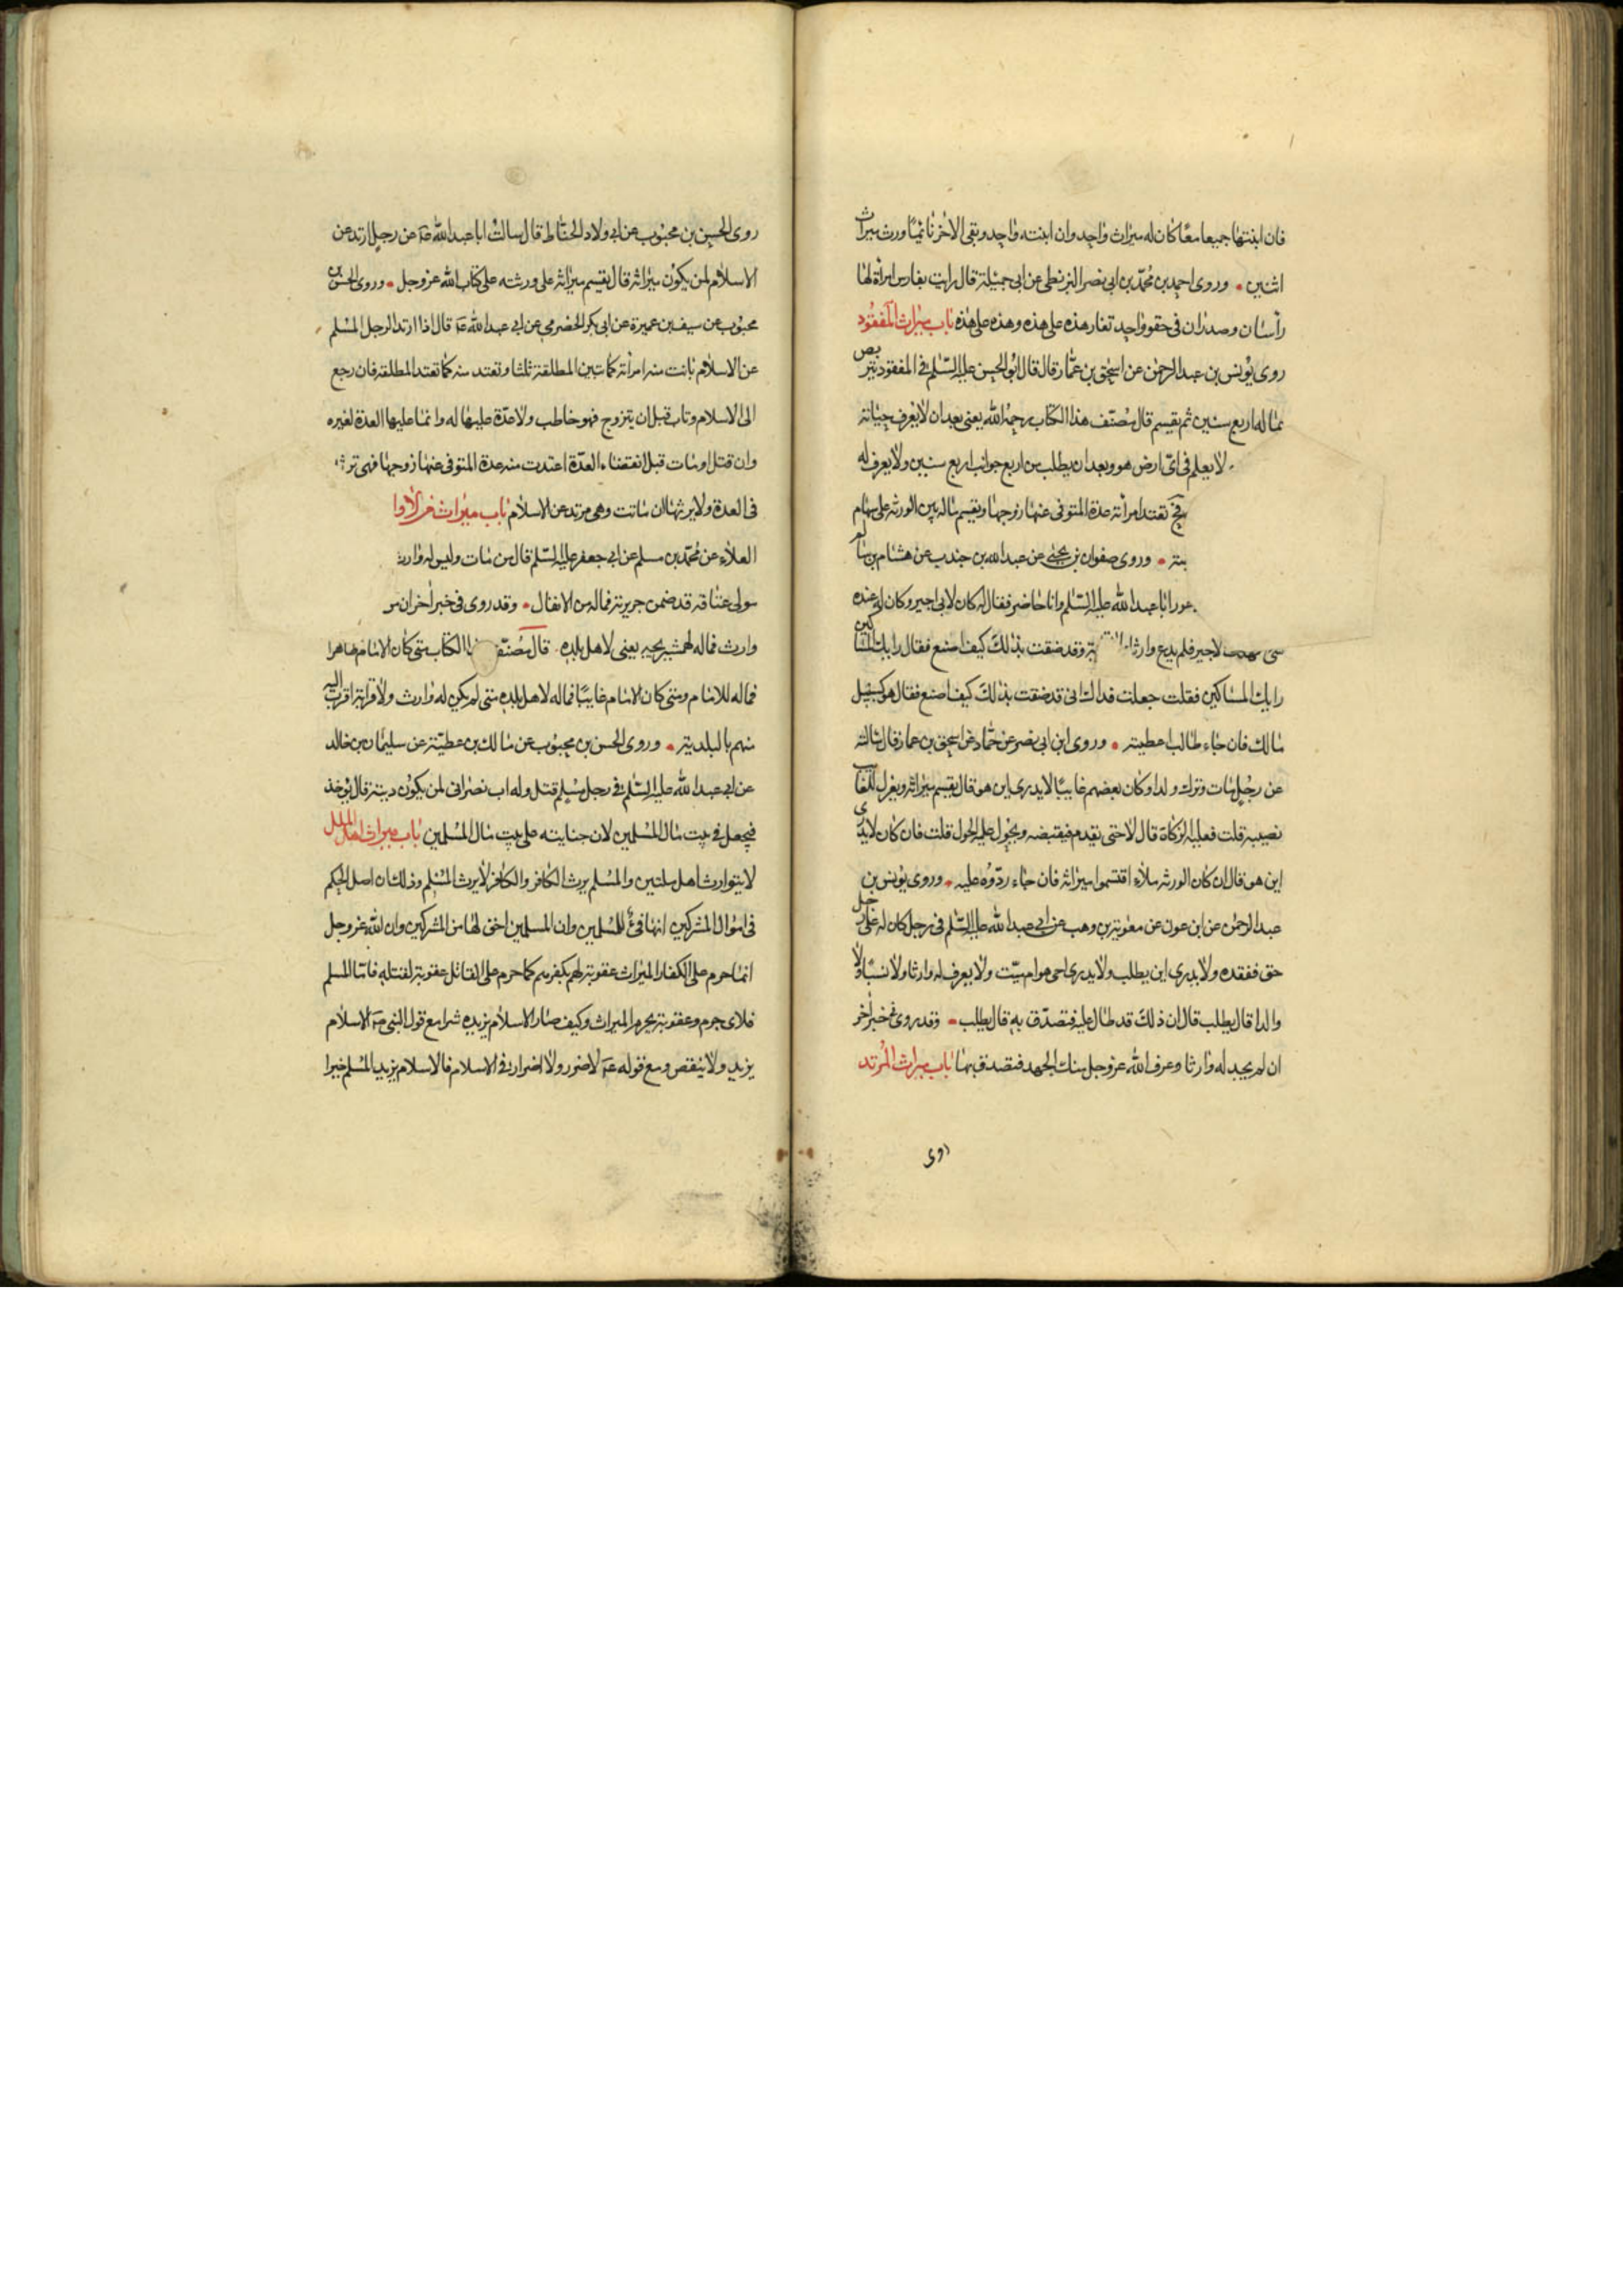 فان انبتها جميعا معًا كان له ميراث واحد وان ابنته واحد وبقى الاخر نائمًا ورث ميراث
اثنين وروى احمد بن محمّد بن ابى نصر البزنطى عن ابى جميلة قال رايت بفارس امراة لها
راسان وصدران فى حقو واحد تغار هذه على هذه وهذه على هذه باب ميراث المفقود
روى يونس بن عبد الرحمن عن اسحق بن عمّار قال قال ابو الحسن عليه السّلم فى المفقود يتربص
بماله اربع سنين ثم يقسم قال مصنّف هذا الكتاب رحمه الله يعنى بعد ان لا يعرف حياته
لا يعلم فى اىّ ارض هو وبعد ان يطلب من اربع جوانب اربع سنين ولا يعرف له
تعتد امراته عدة المتوفى عنها زوجها ويقسم ماله بين الورثه على سهام
وروى صفوان بن يحيى عن عبد الله بن جندب عن هشام بن سالم
ابا عبد الله عليه السّلم وانا حاضر فقال انه كان لابى اجير وكان له عنده
شى الاجير فلم يدع وارثا وقد ضقت بذلك كيف اصنع فقال رابك المساكين
رابك المساكين فقلت جعلت فداك انى قد ضقت بذلك كيف اصنع فقال هو كسبيل
مالك فان جاء طالب اعطيته وروى ابن ابى نصر عن حمّاد عن اسحق بن عمار قال سالته
عن رجل مات وترك ولدا وكان بعضهم غايبًا لا يدرى اين هو قال يقسم ميراثه ويعزل للغايب
نصيبه قلت فعليه الزكاة قال لا حتى يقدم فيقبضه ويحول عليه الحول قلت فان كان لا يدرى
اين هو قال ان كان الورثه ملاء اقتسموا ميراثه فان جاء ردّوه عليه وروى يونس بن
عبد الرحمن عن ابن عون عن معوية بن وهب عن ابى عبد الله عليه السّلم فى رجل كان له على رجل
حق ففقده ولا يدرى اين يطلب ولا يدرى احى هو ام ميّت ولا يعرف له وارثا ولا نسبًا ولا
والدا قال يطلب قال ان ذلك قد طال عليه فيتصدّق به قال يطلب وقد روى فى خبر آخر
ان لم يجد له وارثا وعرف الله عز وجل منك الجهد فتصدق بها باب ميراث المرتد
روى
روى الحسن بن محبوب عن ابى ولاد الحنّاط قال سالت ابا عبد الله ع عن رجل ارتد عن
الاسلام لمن يكون ميراثه قال يقسم ميراثه على ورثته على كتاب الله عز وجل وروى الحسن بن
محبوب عن سيف بن عميرة عن ابى بكر الحضرمى عن ابى عبد الله ع قال اذا ارتد الرجل المسلم
عن الاسلام بانت منه امراته كما تبين المطلقة ثلثا وتعتد منه كما تعتد المطلقه فان رجع
الى الاسلام وتاب قبل ان يتزوج فهو خاطب ولا عدّة عليها له وانما عليها العدة لغيره
وان قتل او مات قبل انقضاء العدّة اعتدت منه عدة المتوفى عنها زوجها فهى ترثه
فى العدة ولا يرثها ان ماتت وهى مرتد عن الاسلام باب ميراث من لا وا
العلاء عن محمّد بن مسلم عن ابى جعفر عليه السّلم قال من مات وليس له وارث
مولى عتاقه قد ضمن جريرته فماله من الانفال وقد روى فى خبر آخر ان من
وارث فماله لهمشيريجيه يعنى لاهل بلده قال مصنّف الكتاب متى كان الامام ظاهرا
فماله للامام ومتى كان الامام غايبًا فماله لاهل بلده متى لم يكن له وارث ولا قرابة اقرب اليه
منهم بالبلدية وروى الحسن بن محبوب عن مالك بن عطيّة عن سليمان بن خالد
عن ابى عبد الله عليه السّلم فى رجل مسلم قتل وله اب نصرانى لمن يكون ديته قال يؤخذ
فيجعل فى بيت مال المسلمين لان جنايته على بيت مال المسلمين باب ميراث اهل الملل
لا يتوارث اهل ملتين والمسلم يرث الكافر والكافر لا يرث المسلم وذلك ان اصل الحكم
فى اموال المشركين انها فىء للمسلمين وان المسلمين احق لها من المشركين وان الله عز وجل
انما حرم على الكفار الميراث عقوبة لهم بكفرهم كما حرم على القاتل عقوبة لقتله فامّا المسلم
فلاى جرم وعقوبة يحرم الميراث وكيف صار الاسلام يزيده شرا مع قول النبى ص الاسلام
يزيد ولا ينقص ومع قوله ع لا ضرر ولا اضرار فى الاسلام فالاسلام يزيد المسلم خيرا